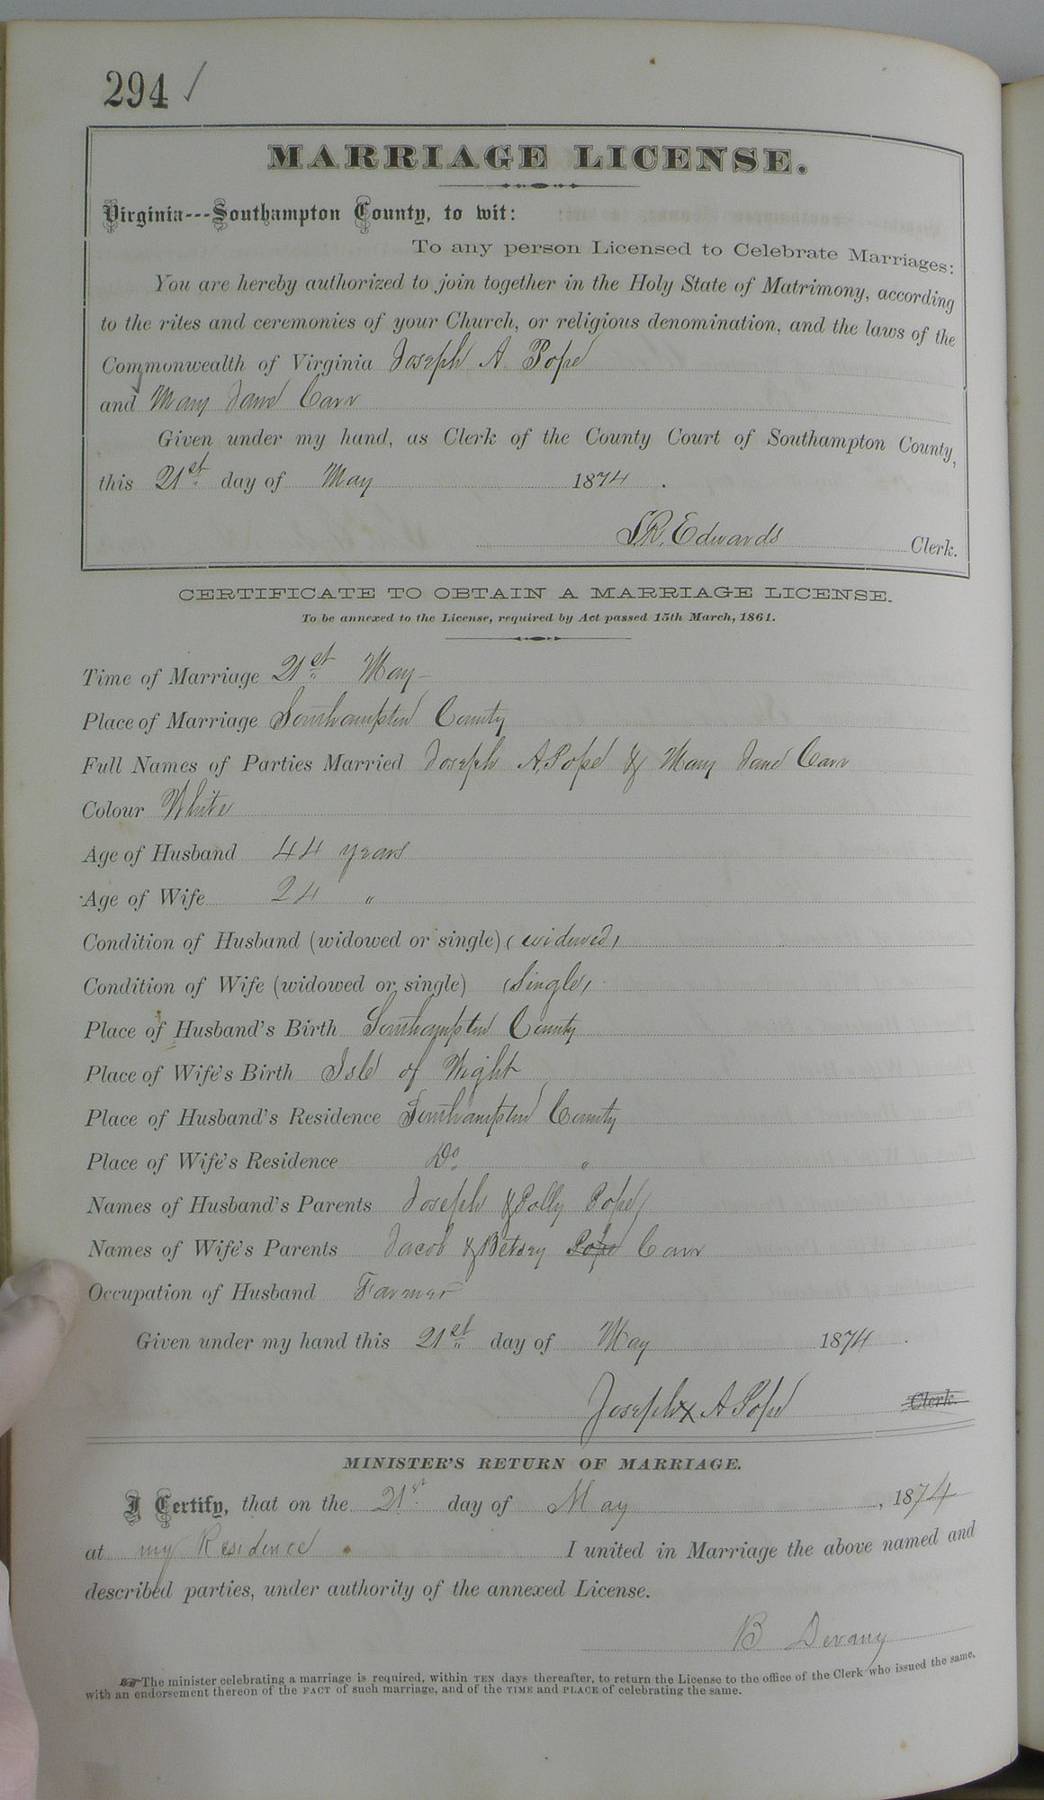 294 /
MARRIAGE LICENSE.
Virginia---Southampton County, to wit:
To any person Licensed to Celebrate Marriages:
You are hereby authorized to join together in the Holy State of Matrimony, according
to the rites and ceremonies of your Church, or religious denomination, and the laws of the
Commonwealth of Virginia Joseph A. Pope
and Mary Jane Carr
Given under my hand, as Clerk of the County Court of Southampton County,
this 21st day of May 1874.
S.R. Edwards Clerk.
CERTIFICATE TO OBTAIN A MARRIAGE LICENSE.
To be annexed to the License, required by Act passed 15th March, 1861.
Time of Marriage 21st May
Place of Marriage Southampton County
Full Names of Parties Married Joseph A. Pope & Mary Jane Carr
Colour White
Age of Husband 44 years
Age of Wife 24 "
Condition of Husband (widowed or single) (widowed)
Condition of Wife (widowed or single) (Single)
Place of Husband's Birth Southampton County
Place of Wife's Birth Isle of Wight
Place of Husband's Residence Southampton County
Place of Wife's Residence Do. "
Names of Husband's Parents Joseph & Polly Pope
Names of Wife's Parents Jacob & Betsey Pope Carr
Occupation of Husband Farmer
Given under my hand this 21st day of May 1874.
Joseph x A Pope Clerk.
MINISTER'S RETURN OF MARRIAGE.
I Certify, that on the 21st day of May, 1874
at my Residence I united in Marriage the above named and
described parties, under authority of the annexed License.
B Devany
☞The minister celebrating a marriage is required, within TEN days thereafter, to return the License to the office of the Clerk who issued the same,
with an endorsement thereon of the FACT of such marriage, and of the TIME and PLACE of celebrating the same.